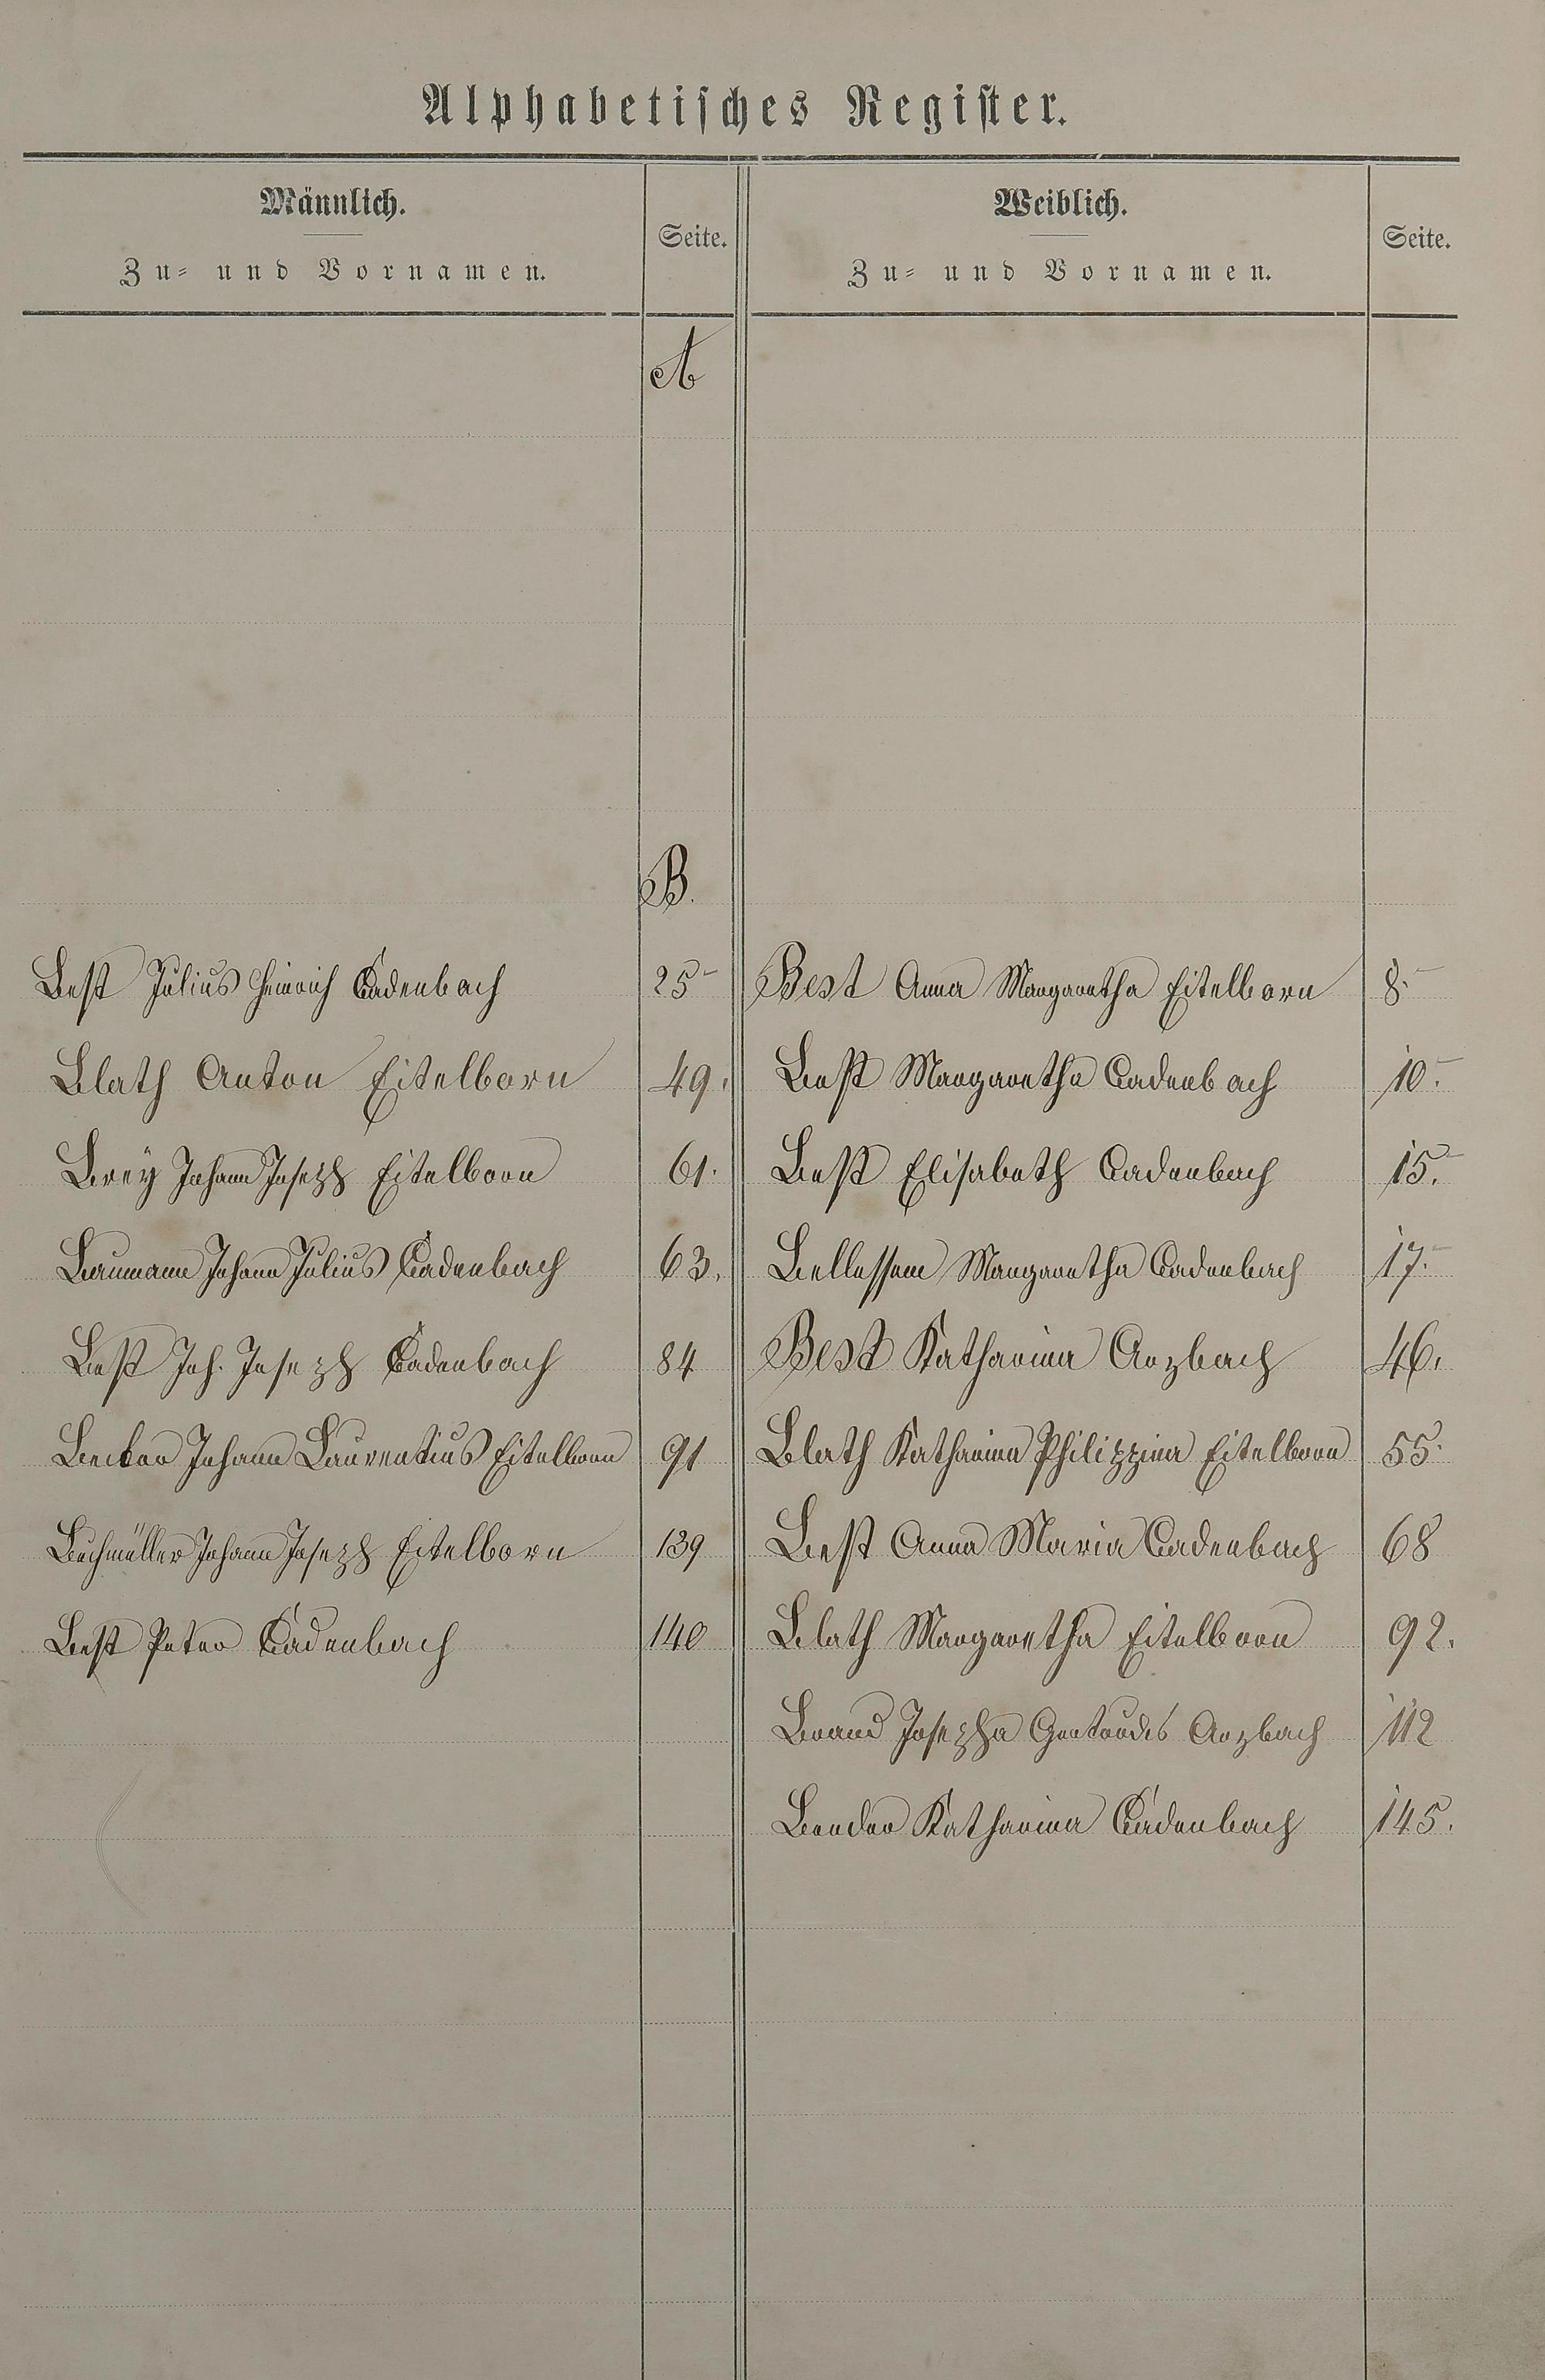 Alphabetisches Register.
Männlich.
Zu- und Vornamen.
Seite.
Weiblich.
Zu- und Vornamen.
Seite.
A
B.
Best Julius Heinrich Cadenbach 25 Best Anna Margaretha Eitelborn 8.
Blath Anton Eitelborn 49. Best Margaretha Cadenbach 10.
Brey Johann Joseph Eitelborn 61. Best Elisabeth Cadenbach 15.
Baumann Johann Julius Cadenbach 63. Bellessem Margaretha Cadenbach 17.
Best Joh. Joseph Cadenbach 84 Best Katharina Arzbach 46.
Becker Johann Laurentius Eitelborn 91 Blath Katharina Philippina Eitelborn 55.
Buchmüller Johann Joseph Eitelborn 139 Best Anna Maria Cadenbach 68
Best Peter Cadenbach 140 Blath Margaretha Eitelborn 92.
Brand Josepha Gertrudis Arzbach 112
Bender Katharina Cadenbach 145.